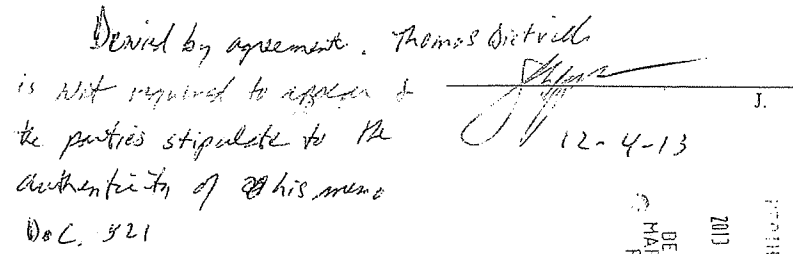 Denied by agreement. Thomas Dietrich
is not required to appear &
the parties stipulate to the
authenticity of his memo
Doc. 321
J.
12-4-13
2013
DE
MAR